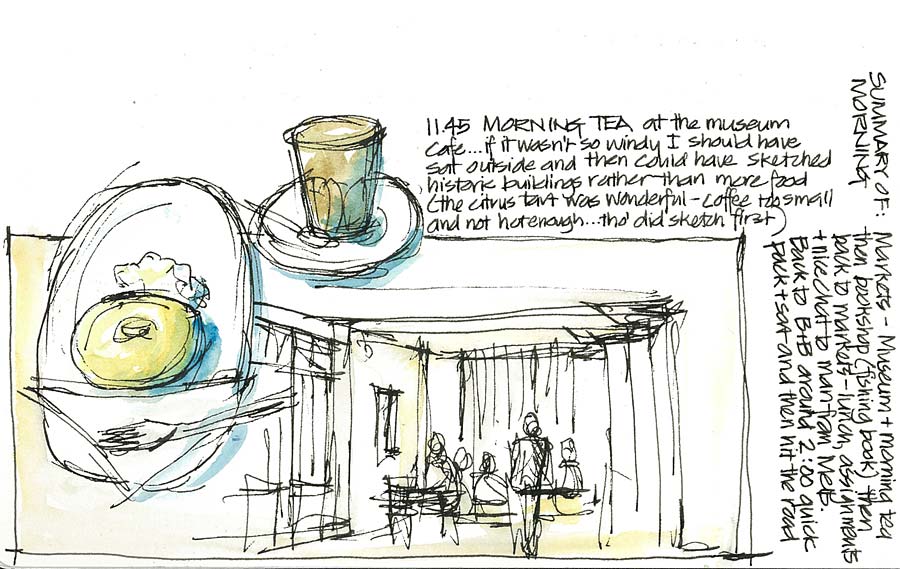 11.45 MORNING TEA at the museum
cafe...if it wasn't so windy I should have
sat outside and then could have sketched
historic buildings rather than more food
(the citrus tart was wonderful - coffee too small
and not hot enough...tho' did sketch first)
SUMMARY OF:
MORNING
Markets - Museum + morning tea
then bookshop (fishing book) then
back to markets - lunch, assignments
+ nice chat to man from Melb.
Back to B+B around 2:00 quick
pack + sort - and then hit the road